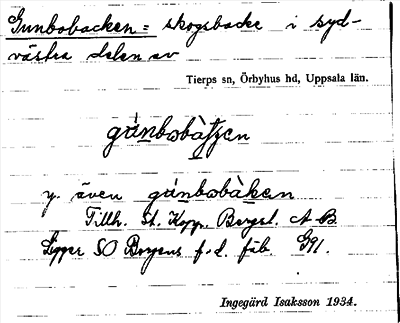 Gunbobacken = skogsbacke i syd-
västra delen av
Tierps sn, Örbyhus hd, Uppsala län.
y. även
Tillh. St. Kopp. Bergsl. A B
Ligger SO f. d. fäb. G91.
Ingegärd Isaksson 1934.